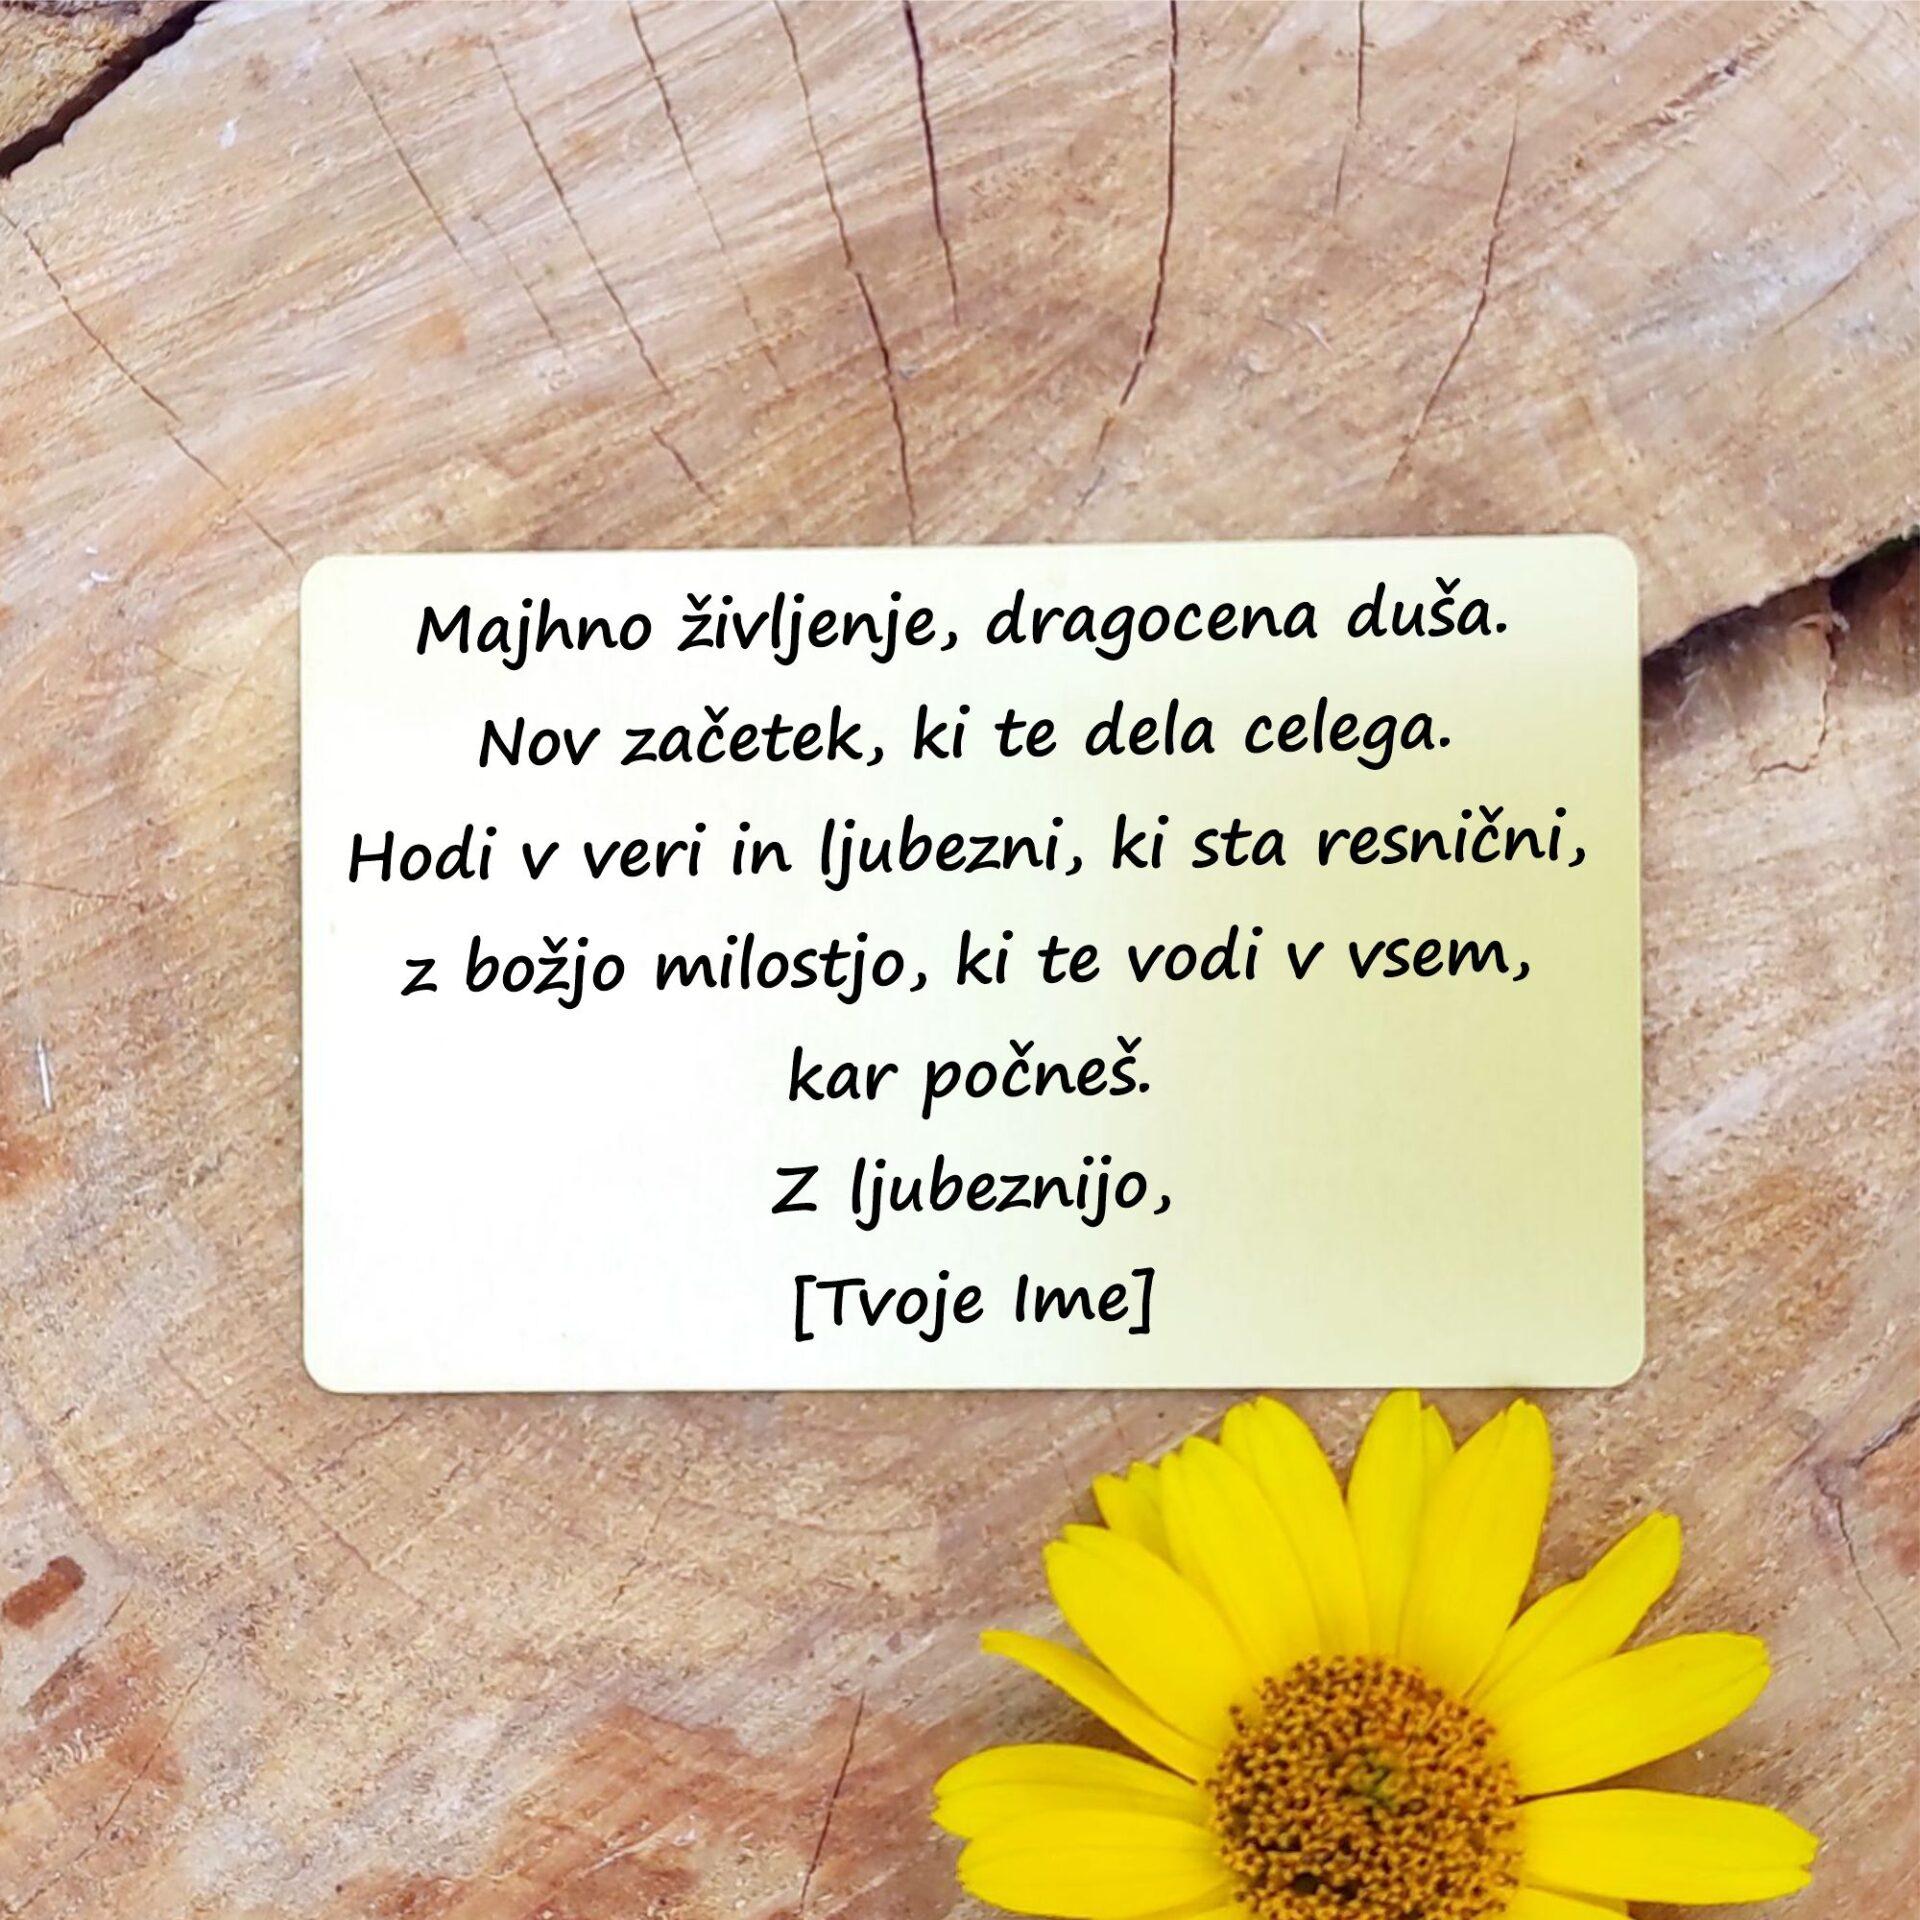 Majhno življenje, dragocena duša.
Nov začetek, ki te dela celega.
Hodi v veri in ljubezni, ki sta resnični,
z božjo milostjo, ki te vodi v vsem,
kar počneš.
Z ljubeznijo,
[Tvoje Ime]